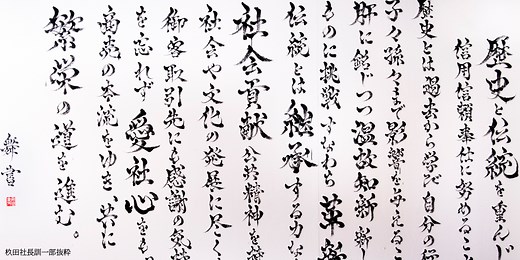 歴史と伝統を重んじ
信用信頼奉仕に努めること
歴史とは過去から学び自分の行
子々孫々まで影響を与えるこ
肝に銘じつつ温故知新新し
ものに挑戦すなわち革新
伝統とは継承する力な
社会貢献公共精神を養
社会や文化の発展に尽く
御客取引先にも感謝の気持
を忘れず愛社心をも
商売の本流をゆき共に
繁栄の道を進む。
書
杦田社長訓一部抜粋